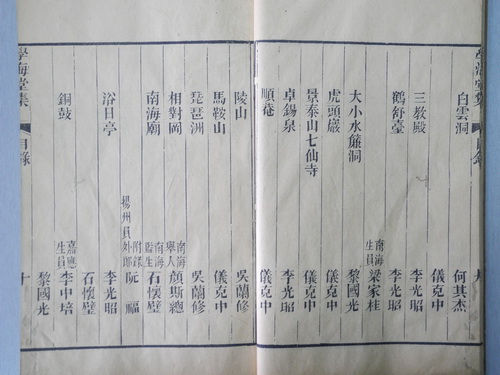 學海堂集 目錄 九
白雲洞 何其杰
儀克中
三教殿 李光昭
鶴舒臺 李光昭
南海生員 梁家桂
大小水簾洞 黎國光
虎頭巖 儀克中
景泰山七仙寺 儀克中
卓錫泉 李光昭
順菴 儀克中
陵山 吳蘭修
馬鞍山 儀克中
琵琶洲 吳蘭修
相對岡 南海舉人 顏斯總
南海廟 南海監生 石懷璧
揚州員外郎 附錄 阮福
浴日亭 李光昭
石懷璧
銅鼓 嘉應生員 李中培
黎國光
學海堂集 目錄 十